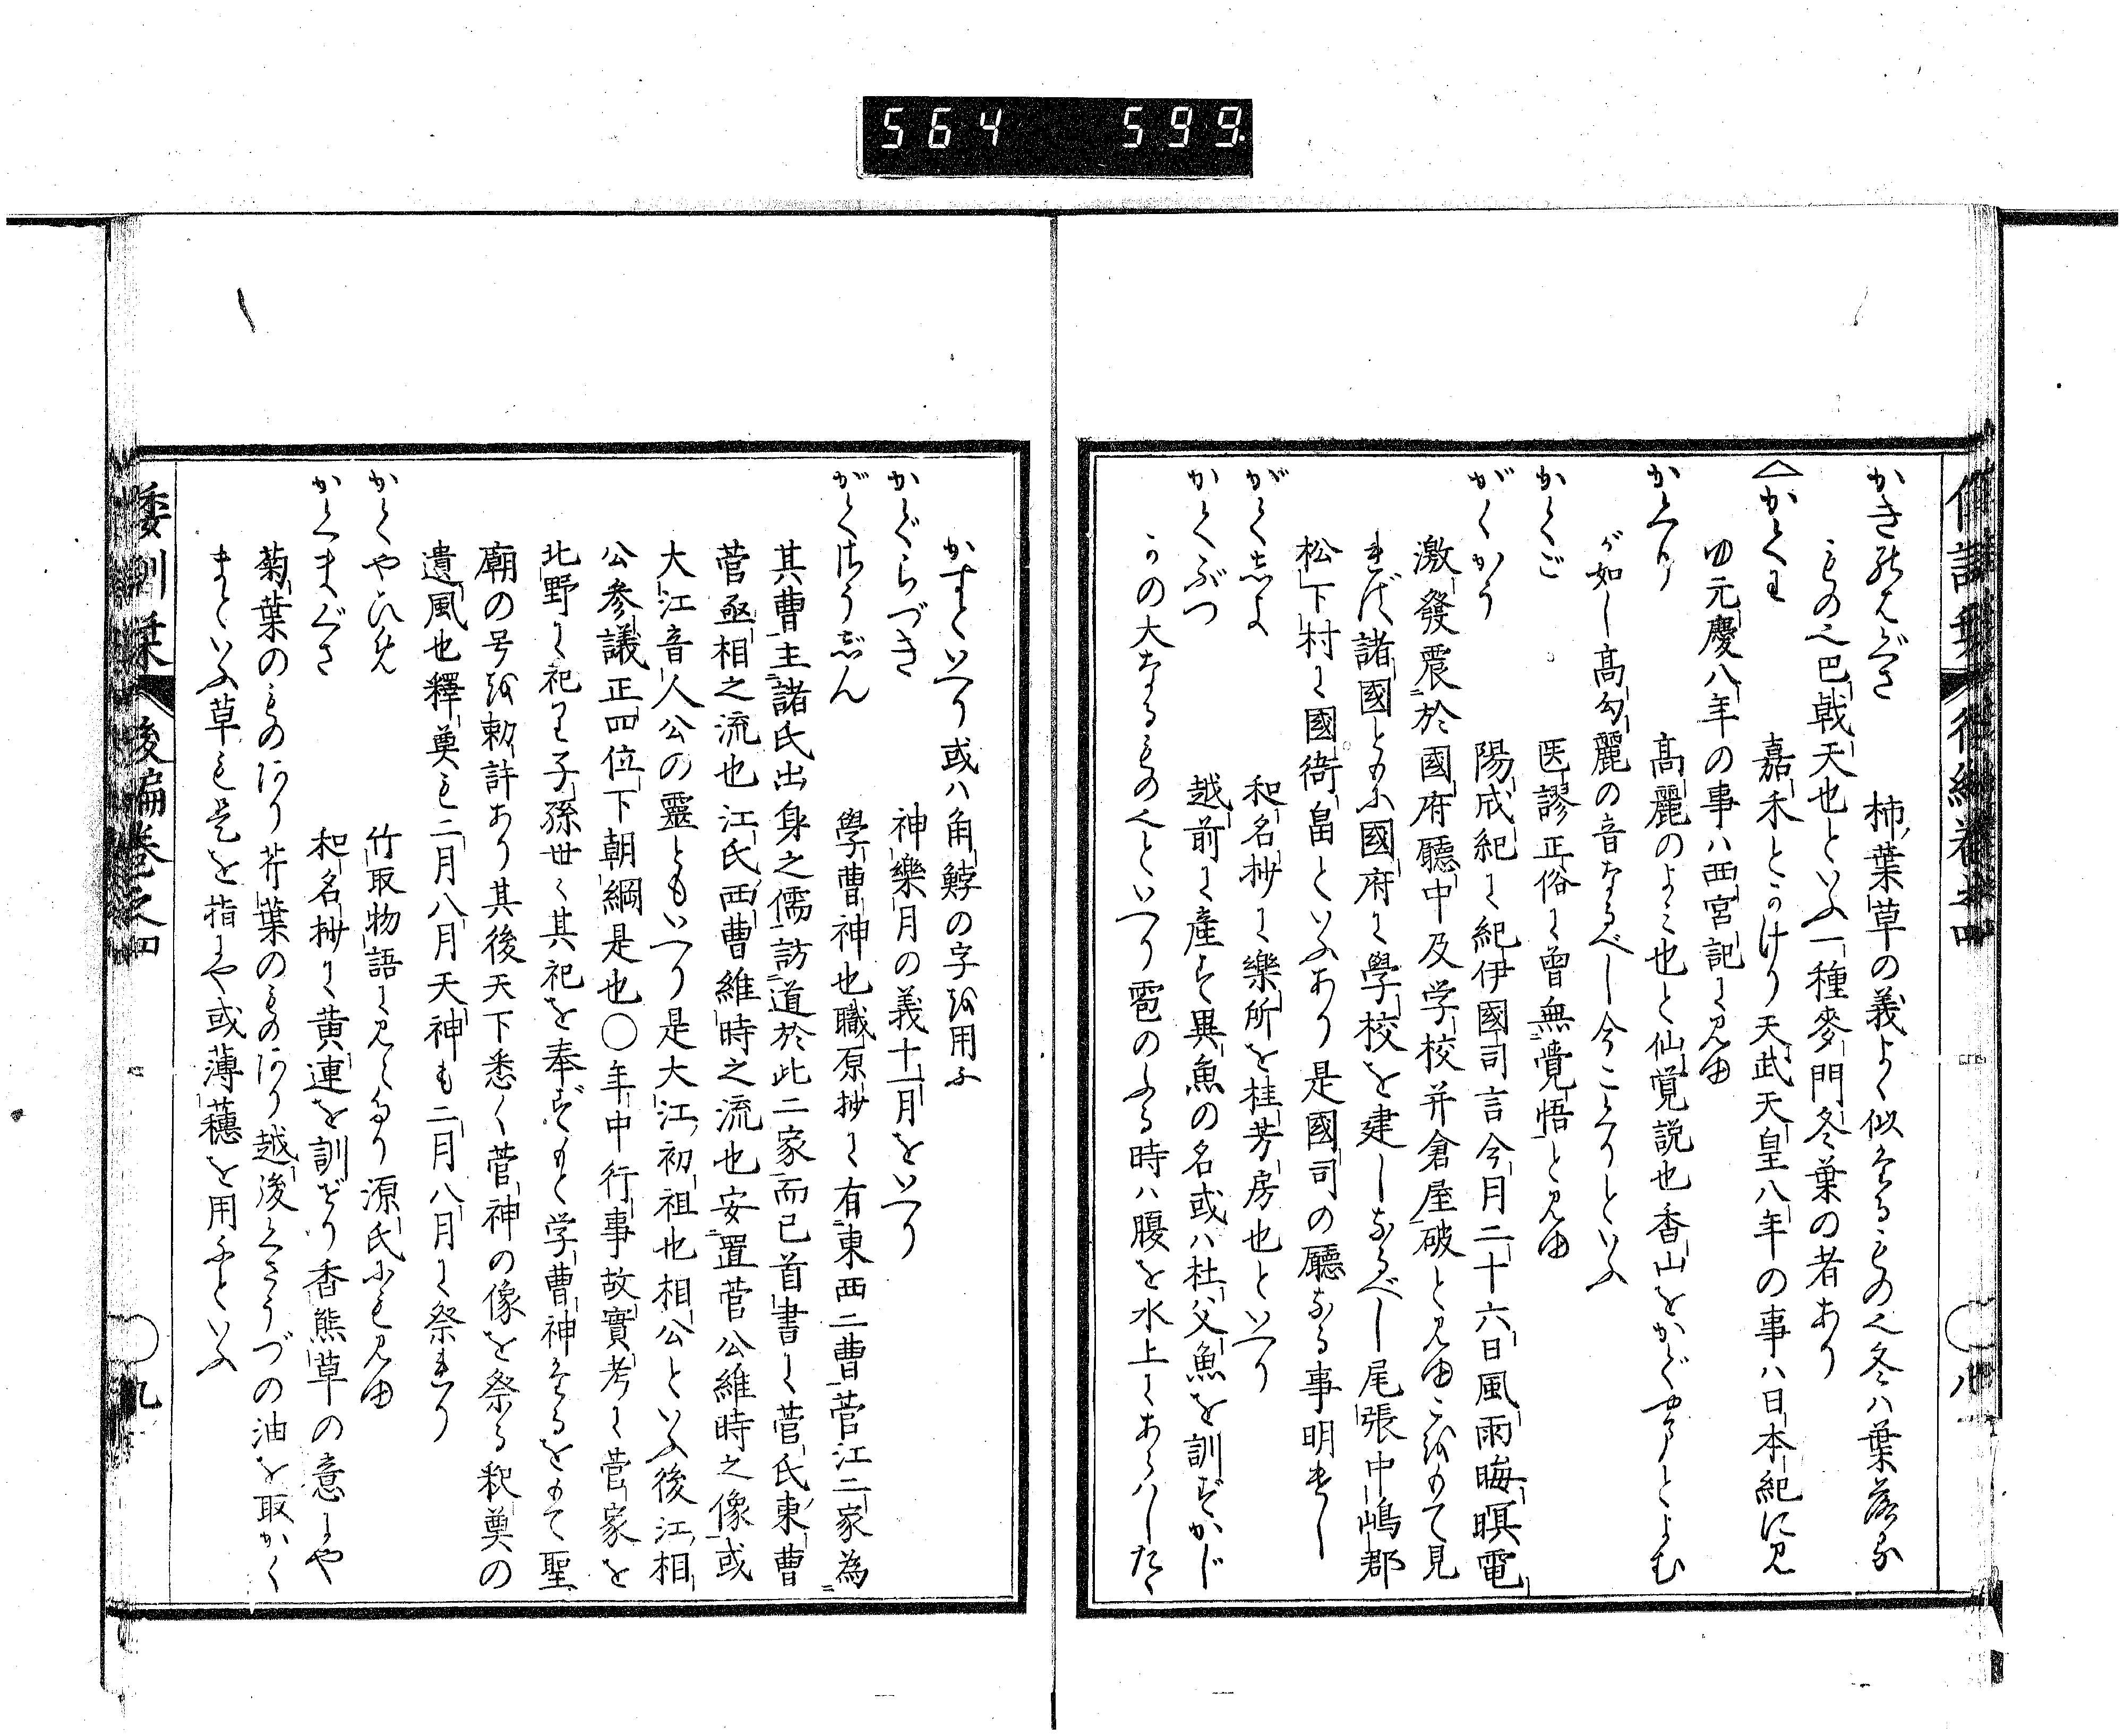 564 599
かきのはぐさ 柿葉草の義よく似たるもの也冬ハ葉落る
もの也巴戟天也といふ一種麥門冬葉の者あり
かくわ 嘉禾とかけり天武天皇八年の事ハ日本紀に見
ゆ元慶八年の事ハ西宮記に見ゆ
かくり 高麗のよミ也と仙覚説也香山をかぐやまとよむ
が如し高勾麗の音なるべし今こくりといふ
かくご 医謬正俗に曾無覺悟と見ゆ
がくかう 陽成紀に紀伊國司言今月二十六日風雨晦暝電
激發震於國府廳中及学校并倉屋破と見ゆこをもて見
れば諸國ともに國府に學校を建しなるべし尾張中嶋郡
松下村に國衙畠といふあり是國司の廳なる事明けし
がくしよ 和名抄に樂所を桂芳房也といへり
かくぶつ 越前に産す異魚の名或ハ杜父魚を訓ずかじ
かの大なるもの也といへり雹のふる時ハ腹を水上にあらハしたく
かすといへり或ハ角鯙の字を用ふ
かぐらづき 神樂月の義十一月をいへり
がくさうじん 學曹神也職原抄に有東西二曹菅江二家為
其曹主諸氏出身之儒訪道於此二家而已首書に菅氏東曹
菅丞相之流也江氏西曹維時之流也安置菅公維時之像或
大江音人公の靈ともいへり是大江初祖也相公といふ後江相
公参議正四位下朝綱是也〇年中行事故實考に菅家を
北野に祀り子孫世々其祀を奉ずもと学曹神たるをもて聖
廟の号を勅許あり其後天下悉く菅神の像を祭る釈奠の
遺風也釋奠も二月八月天神も二月八月に祭れり
かくやひめ 竹取物語に見えたり源氏にも見ゆ
かくまぐさ 和名抄に黄連を訓ぜり香熊草の意にや
菊葉のものあり芹葉のものあり越後くさうづの油を取かく
まといふ草も是を指にや或薄穗を用ふといふ
倭訓栞 後編巻之四 九